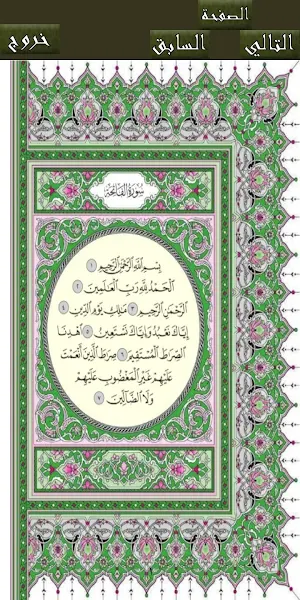 الصفحة
التالي السابق خروج
سُورَةُ الْفَاتِحَةِ
بِسْمِ اللَّهِ الرَّحْمَٰنِ الرَّحِيمِ ١
الْحَمْدُ لِلَّهِ رَبِّ الْعَالَمِينَ ٢
الرَّحْمَٰنِ الرَّحِيمِ ٣ مَالِكِ يَوْمِ الدِّينِ ٤
إِيَّاكَ نَعْبُدُ وَإِيَّاكَ نَسْتَعِينُ ٥ اهْدِنَا
الصِّرَاطَ الْمُسْتَقِيمَ ٦ صِرَاطَ الَّذِينَ أَنْعَمْتَ
عَلَيْهِمْ غَيْرِ الْمَغْضُوبِ عَلَيْهِمْ
وَلَا الضَّالِّينَ ٧